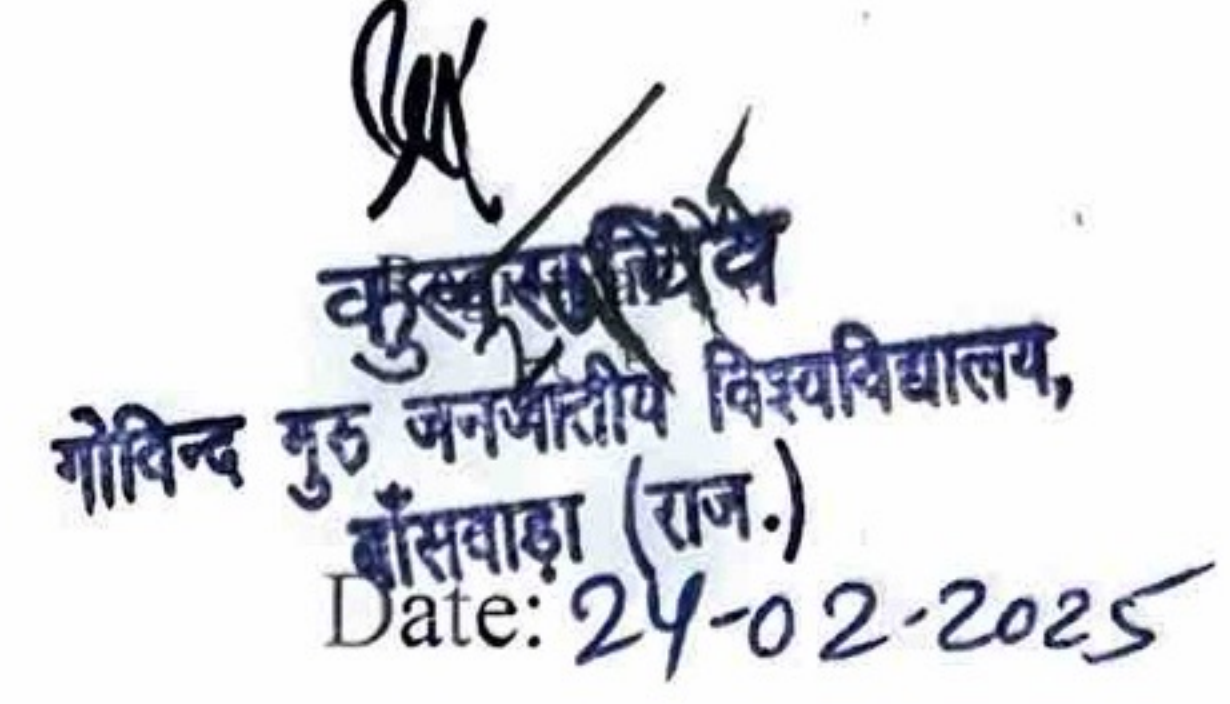 गोविन्द गुरु जनजातीय विश्वविद्यालय,
बाँसवाड़ा (राज.)
Date: 24-02-2025